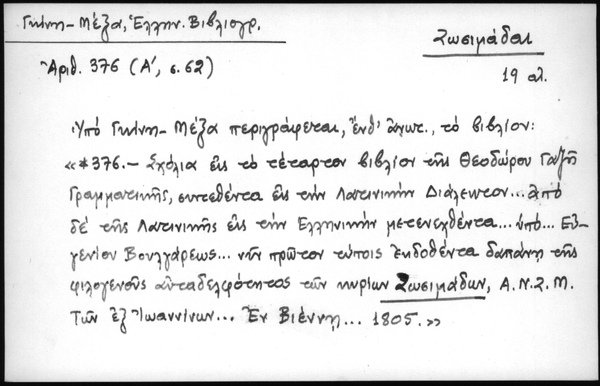 Γκίνη - Μέξα, Ἑλλην. Βιβλιογρ.
Ζωσιμάδαι
Ἀριθ. 376 (Α', σ. 62)
19 αἰ.
Ὑπό Γκίνη - Μέξα περιγράφεται, ἔνθ' ἀνωτ., τό βιβλίον:
«*376.- Σχόλια εἰς τό τέταρτον βιβλίον τῆς Θεοδώρου Γαζῆ
Γραμματικῆς, συντεθέντα εἰς τήν Λατινικήν Διάλεκτον... Ἀπό
δέ τῆς Λατινικῆς εἰς τήν Ἑλληνικήν μετενεχθέντα... ὑπό... Εὐ-
γενίου Βουλγάρεως... νῦν πρῶτον τύποις ἐκδοθέντα δαπάνῃ τῆς
φιλογενοῦς αὐταδελφότητος τῶν κυρίων Ζωσιμάδων, Α.Ν.Ζ.Μ.
τῶν ἐξ Ἰωαννίνων... Ἐν Βιέννῃ... 1805.»